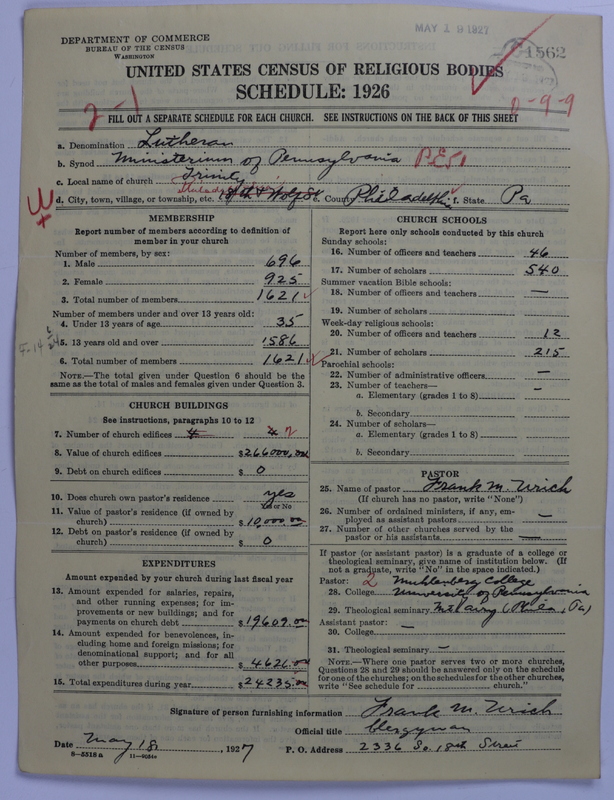 MAY 19 1927
DEPARTMENT OF COMMERCE
BUREAU OF THE CENSUS
WASHINGTON
1562
UNITED STATES CENSUS OF RELIGIOUS BODIES
SCHEDULE: 1926
2-1
0-9-9
FILL OUT A SEPARATE SCHEDULE FOR EACH CHURCH. SEE INSTRUCTIONS ON THE BACK OF THIS SHEET
a. Denomination Lutheran
b. Synod Ministerium of Pennsylvania PE51
c. Local name of church Trinity
d. City, town, village, or township, etc. 18th & Wolf St e. County Philadelphia f. State Pa
MEMBERSHIP
Report number of members according to definition of member in your church
Number of members, by sex:
1. Male 696
2. Female 925
3. Total number of members 1621
Number of members under and over 13 years old:
4. Under 13 years of age 35
5. 13 years old and over 1586
6. Total number of members 1621
NOTE.—The total given under Question 6 should be the same as the total of males and females given under Question 3.
CHURCH BUILDINGS
See instructions, paragraphs 10 to 12
7. Number of church edifices 4 2
8. Value of church edifices $266000.00
9. Debt on church edifices $ 0
10. Does church own pastor's residence yes
Yes or No
11. Value of pastor's residence (if owned by church) $10,000.00
12. Debt on pastor's residence (if owned by church) $ 0
EXPENDITURES
Amount expended by your church during last fiscal year
13. Amount expended for salaries, repairs, and other running expenses; for improvements or new buildings; and for payments on church debt $19609.00
14. Amount expended for benevolences, including home and foreign missions; for denominational support; and for all other purposes $4626.00
15. Total expenditures during year $24235.00
CHURCH SCHOOLS
Report here only schools conducted by this church
Sunday schools:
16. Number of officers and teachers 46
17. Number of scholars 540
Summer vacation Bible schools:
18. Number of officers and teachers —
19. Number of scholars
Week-day religious schools:
20. Number of officers and teachers 12
21. Number of scholars 215
Parochial schools:
22. Number of administrative officers —
23. Number of teachers— —
a. Elementary (grades 1 to 8)
b. Secondary
24. Number of scholars—
a. Elementary (grades 1 to 8)
b. Secondary
PASTOR
25. Name of pastor Frank M. Urich
(If church has no pastor, write "None")
26. Number of ordained ministers, if any, employed as assistant pastors —
27. Number of other churches served by the pastor or his assistants —
If pastor (or assistant pastor) is a graduate of a college or theological seminary, give name of institution below. (If not a graduate, write "No" in the space indicated.)
Pastor: 2 Muhlenberg College
28. College University of Pennsylvania
29. Theological seminary Mt. Airy (Phila, Pa)
Assistant pastor: —
30. College
31. Theological seminary —
NOTE.—Where one pastor serves two or more churches, Questions 28 and 29 should be answered only on the schedule for one of the churches; on the schedules for the other churches, write "See schedule for church."
Signature of person furnishing information Frank M. Urich
Official title Clergyman
Date May 18, 1927 P. O. Address 2336 So. 18th Street
8-5518a